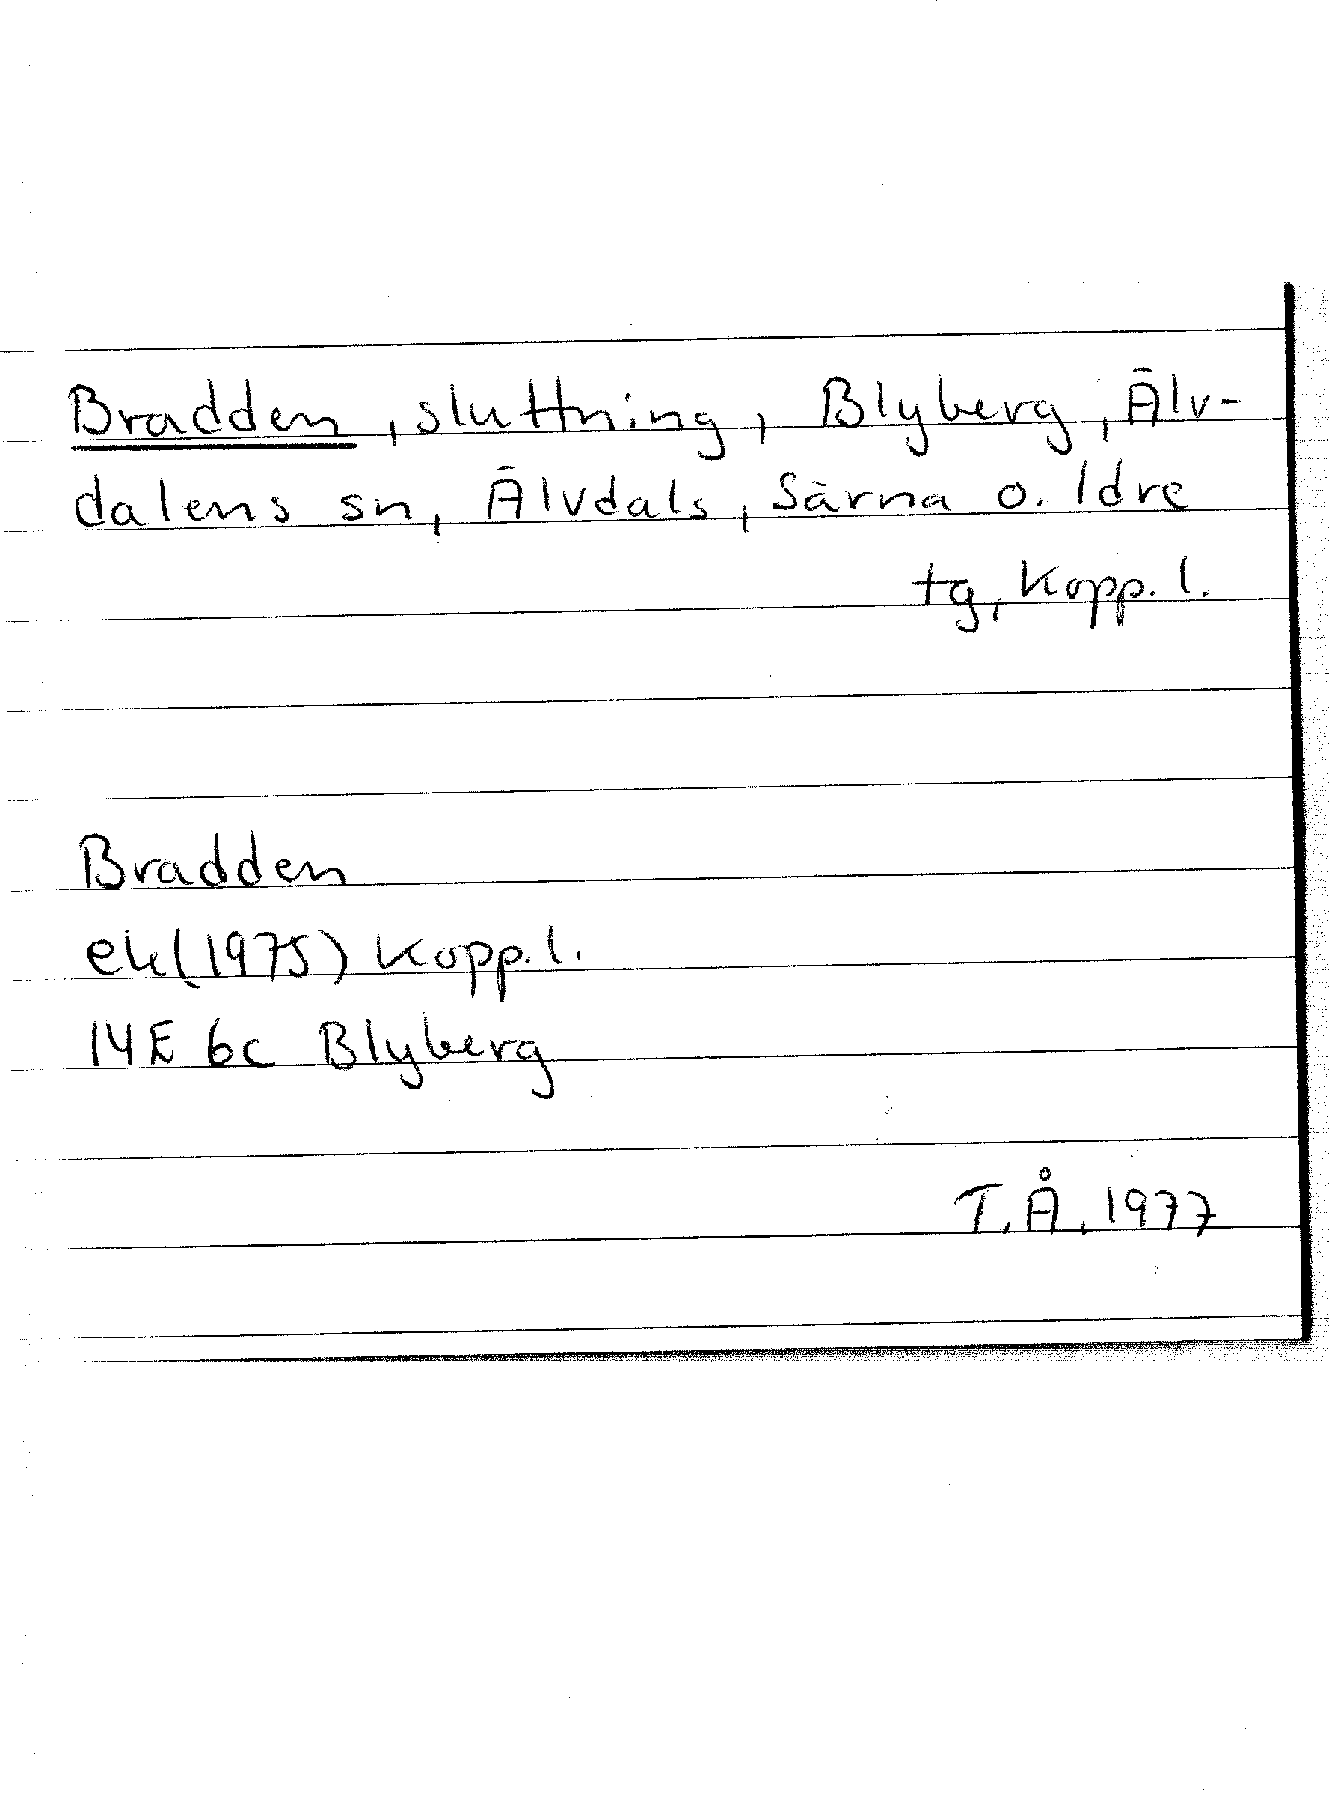 Bradden, sluttning, Blyberg, Älv-
dalens sn, Älvdals, Särna o. Idre
tg, Kopp. l.
Bradden
ek (1975) Kopp. l.
14E 6c Blyberg
T. Å. 1977